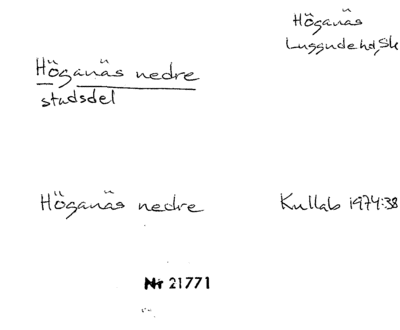 Höganäs
Luggude hd, Sk
Höganäs nedre
stadsdel
Höganäs nedre
Kullab 1974:38
Nr 21771